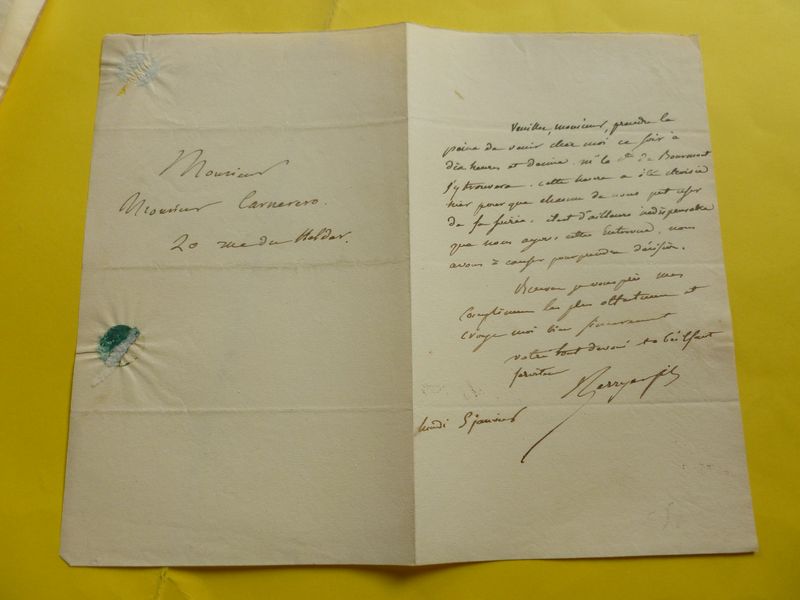 Monsieur
Monsieur Carnerero
20 rue du Helder.
Veuillez, monsieur, prendre la
peine de venir chez moi ce soir à
dix heures et demie. Mr le Cte de Bourmont
s'y trouvera. cette heure a été choisie
hier pour que chacun de nous put user
de sa soirée. il est d'ailleurs indispensable
que nous ayons cette Entrevue, nous
avons à causer pour prendre décision.
Recevez je vous prie mes
Compliments les plus et
croyez moi bien sincerement
votre tout dévoué et obéissant
serviteur
Berryer fils
lundi 5 janvier